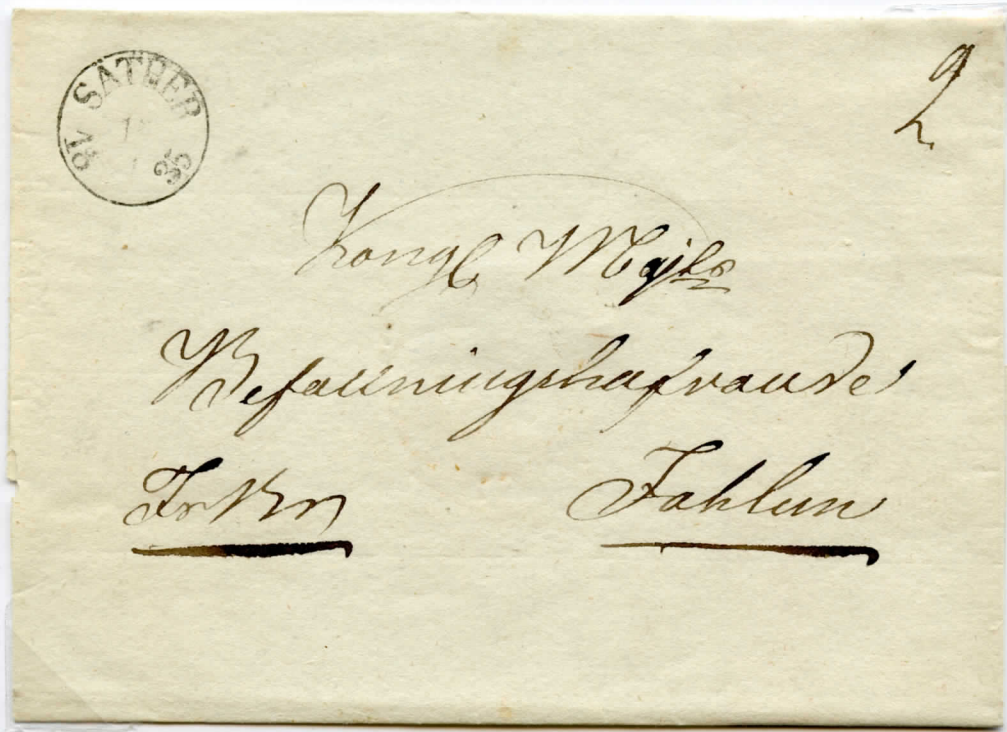 SÄTHER
18 35
2
Kongl Majts
Befallningshafvande
Fr Br Fahlun